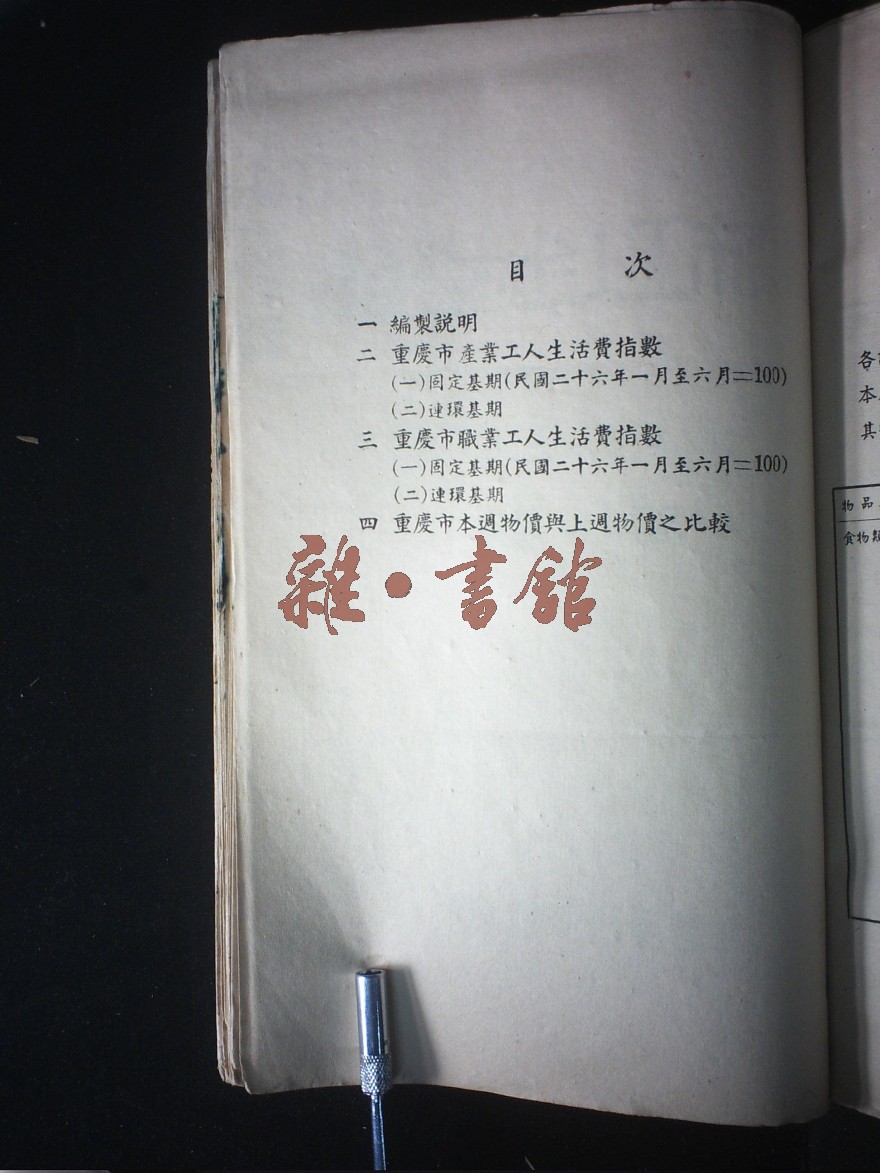 目 次
一 編製說明
二 重慶市產業工人生活費指數
(一)固定基期(民國二十六年一月至六月=100)
(二)連環基期
三 重慶市職業工人生活費指數
(一)固定基期(民國二十六年一月至六月=100)
(二)連環基期
四 重慶市本週物價與上週物價之比較
雜·書館
各
本
其
物品
食物類